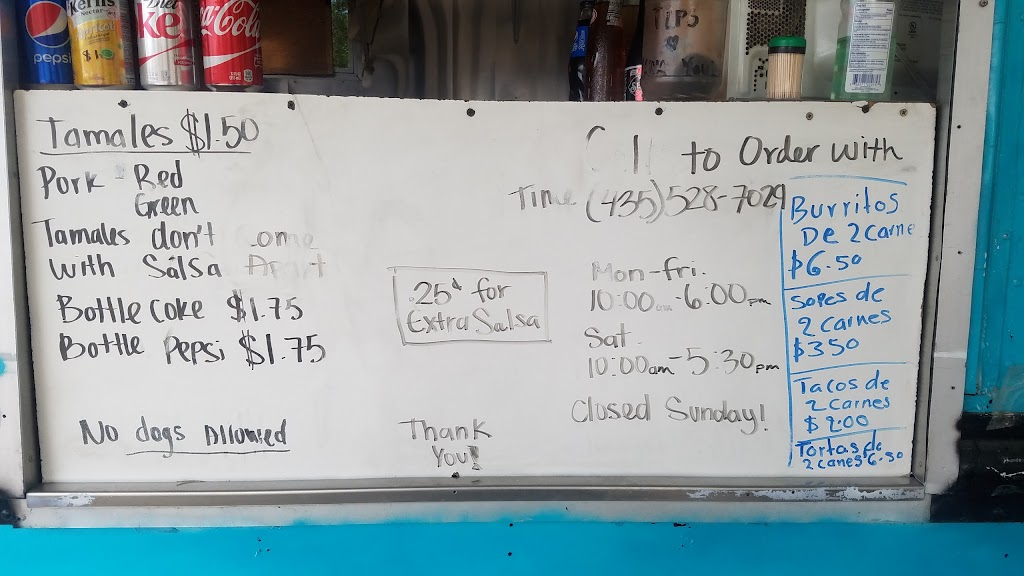 pepsi
Kerns
Nectar
$1.
Diet
Ke
Coca-Cola
TIPS
YOU!
Tamales $1.50
Pork - Red
Green
Tamales don't come
with Salsa Apart
Bottle Coke $1.75
Bottle Pepsi $1.75
No dogs Allowed
.25¢ for
Extra Salsa
Thank
You!
Call to Order with
Time (435)528-7029
Mon-fri.
10:00am-6:00pm
Sat.
10:00am-5:30pm
Closed Sunday!
Burritos
De 2 carne
$6.50
Sopes de
2 carnes
$3.50
Tacos de
2 carnes
$2.00
Tortas de
2 canes 6.50